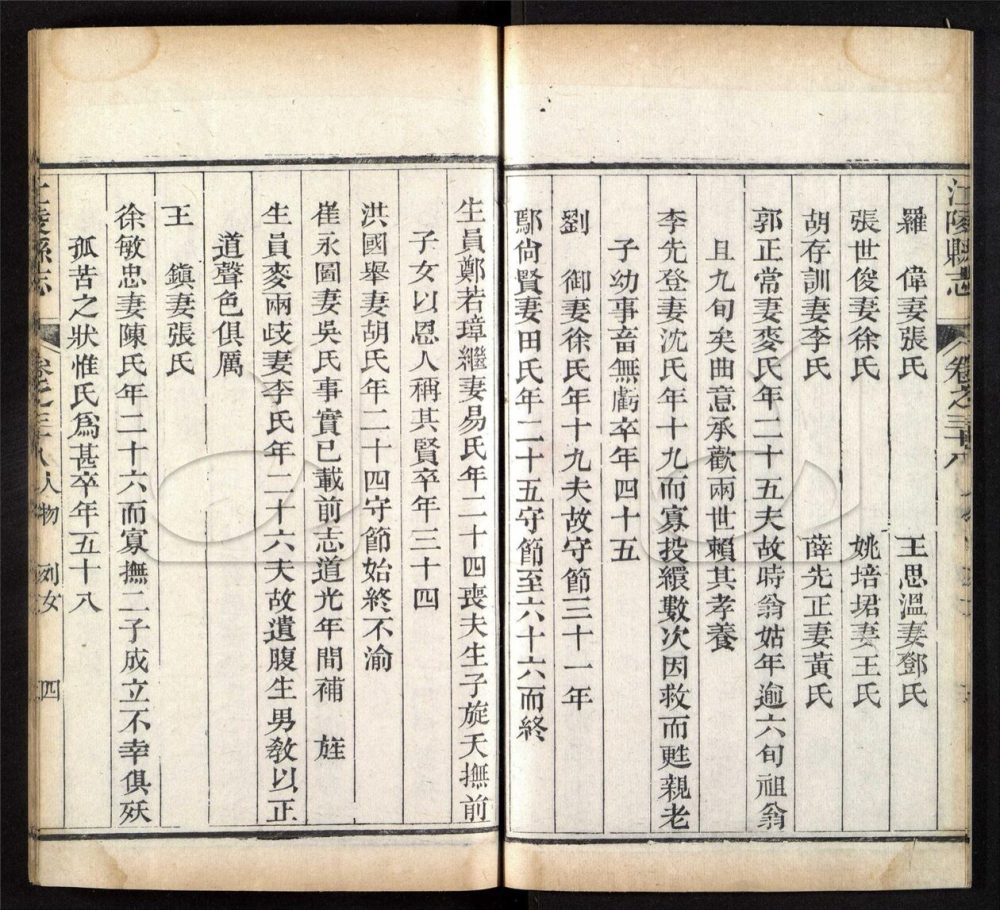 江陵縣志 卷之三十八
羅 偉妻張氏 王思溫妻鄧氏
張世俊妻徐氏 姚培珺妻王氏
胡存訓妻李氏 薛先正妻黃氏
郭正常妻麥氏年二十五夫故時翁姑年逾六旬祖翁
且九旬矣曲意承歡兩世賴其孝養
李先登妻沈氏年十九而寡投繯數次因救而甦親老
子幼事畜無虧卒年四十五
劉 御妻徐氏年十九夫故守節三十一年
鄢尙賢妻田氏年二十五守節至六十六而終
生員鄭若璋繼妻易氏年二十四喪夫生子旋夭撫前
子女以恩人稱其賢卒年三十四
洪國舉妻胡氏年二十四守節始終不渝
崔永圖妻吳氏事實已載前志道光年間補 旌
生員麥兩歧妻李氏年二十六夫故遺腹生男敎以正
道聲色俱厲
王 鎮妻張氏
徐敏忠妻陳氏年二十六而寡撫二子成立不幸俱殀
孤苦之狀惟氏爲甚卒年五十八
江陵縣志 卷之三十八 人物 列女 四